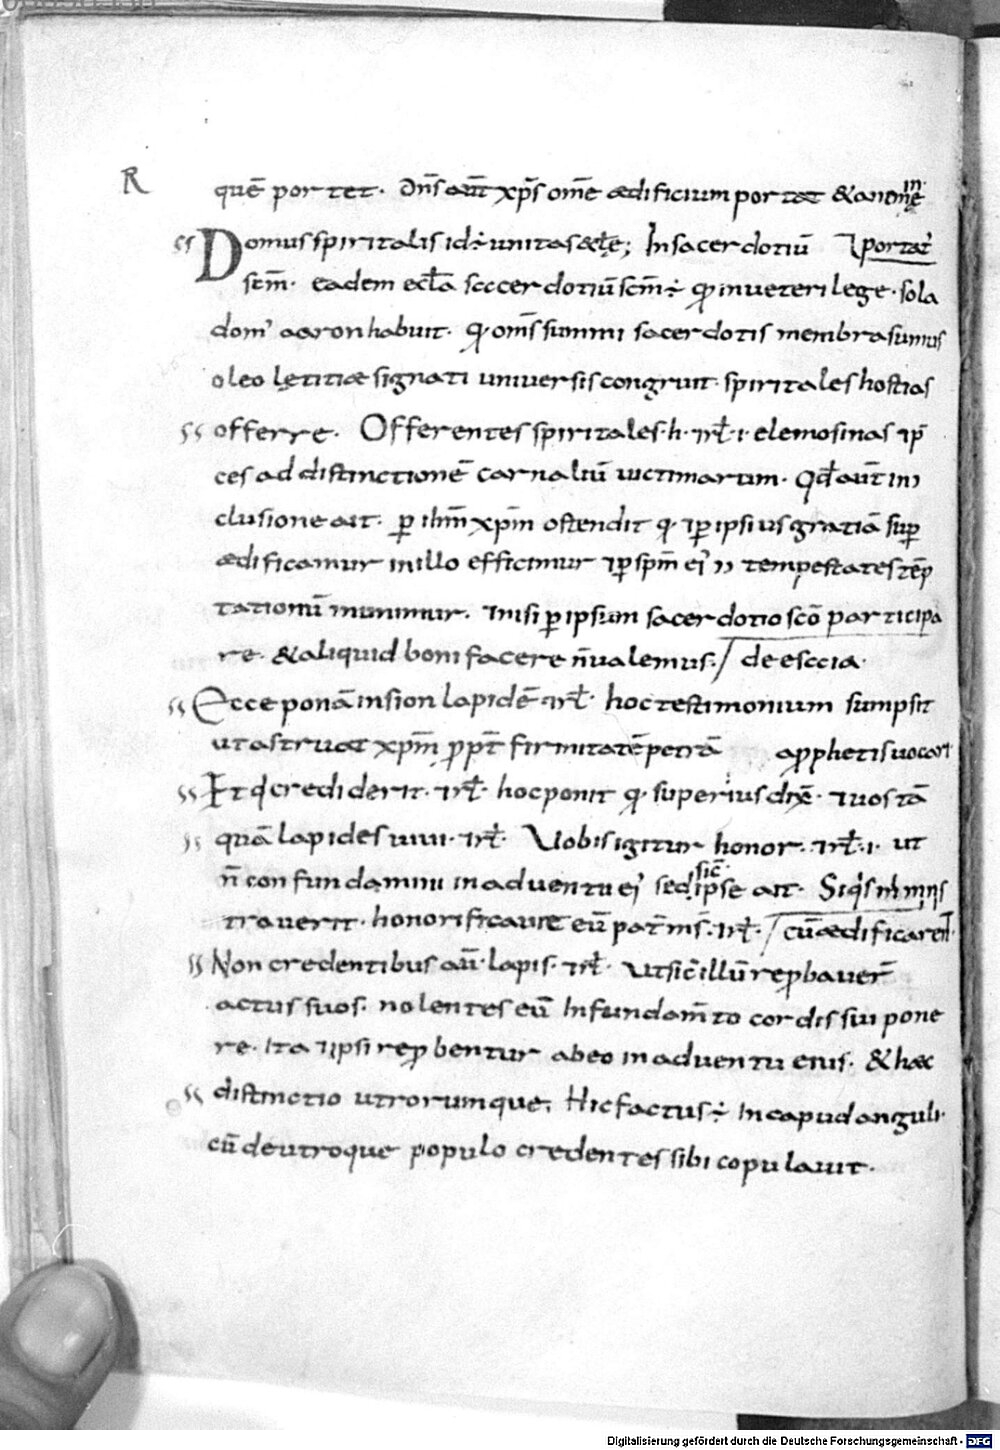 R
quē portet · dn̄s aūt xp̄s om̄e ædificium portat & a nemine
Domus spiritalis id ÷ unitas æcłe; In sacerdotiū ⁊portat᷑
scm̄ · eadem eccła saccerdotiū scm̄ ÷ ꝙ in ueteri lege · sola
dom' aaron habuit · ꝙ om̄s summi sacerdotis membra sumus
oleo lętitiæ signati uniuersis congruit · spiritales hostias
offerre. Offerentes spiritales · h · ⁊rł · i · elemosinas ⁊ p̄
ces ad distinctionē carnaliū uictimarum · Qd̄ aūt in
clusione ait · ꝑ ihm̄ xpm̄ ostendit ꝙ ⁊ ꝑ ipsius gratiā suꝑ
ædificamur in illo efficimur ⁊ ꝑ spm̄ ei' ⁊ tempestates tēp
tationū munimur. ⁊ nisi ꝑ ipsum sacerdotio scō participa
re · & aliquid boni facere n̄ ualemus · / de esccia ·
Ecce ponā in sion lapidē ⁊rł · hoc testimonium sumpsit
ut astruat xpm̄ ꝓpt̄ firmitatē petrā a ꝓphetis uocari
Et q̇ crediderit · ⁊rł · hoc ponit ꝙ superius dix̄ · ⁊ uos tā
quā lapides uiui · ⁊rł · Uobis igitur honor · ⁊rł · i · ut
n̄ confundamini in aduentu ei' sed sic̄ ipse ait · Siq̇s m̄ minis
trauerit · honorificauit eū pat̄ m̄s · ⁊rł · / cū ædificaren̄t
Non credentibus aū · lapis · ⁊rł · Ut sic̄ illū reꝓbauer̄
actus suos · nolentes eū in fundam̄to cordis sui pone
re · ita ⁊ ipsi reꝓbentur ab eo in aduentu eius · & hæc
distinctio utrorumque; Hic factus ÷ in capud anguli ·
cū de utroque populo credentes sibi copulauit ·
Digitalisierung gefördert durch die Deutsche Forschungsgemeinschaft - DFG